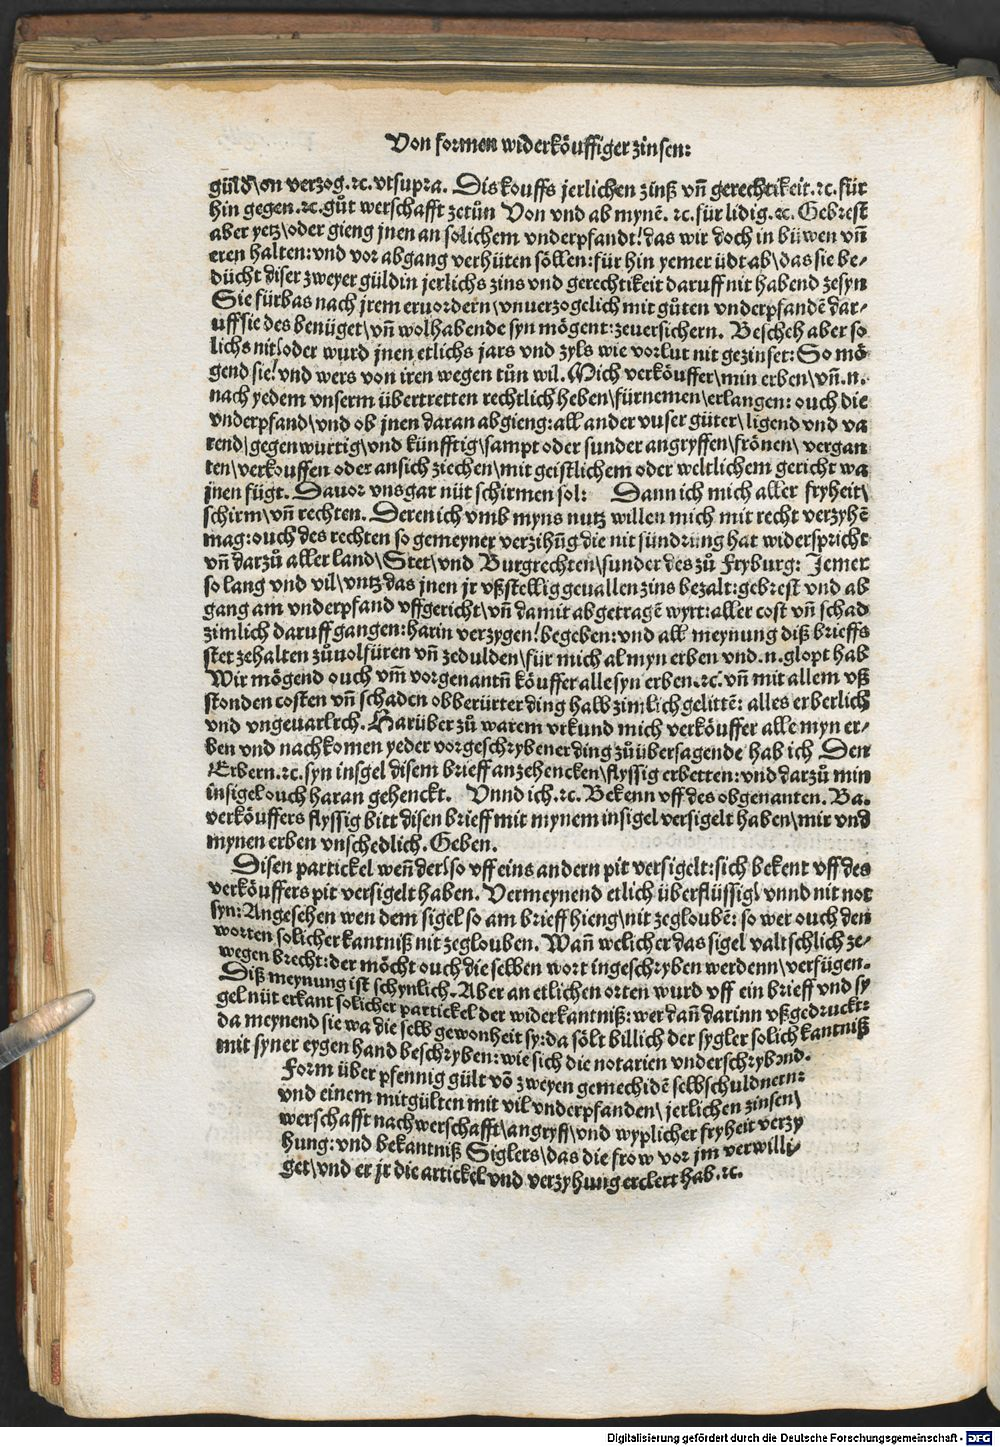 Von formen widerköuffiger zinsen:
güld\on verzog.ꝛc.vtsupra. Dis kouffs jerlichen zinß vn̄ gerechtikeit.ꝛc.für
hin gegen.ꝛc.gůt werschafft zetůn Von vnd ab mynē.ꝛc.für lidig.ꝛc. Gebrest
aber yetz\oder gieng jnen an solichem vnderpfandt! das wir doch in büwen vn̄
eren halten: vnd vor abgang verhüten söllen: für hin yemer üdt ab\das sie be⸗
dücht diser zweyer güldin jerlichs zins vnd gerechtikeit daruff nit habend zesyn
Sie fürbas nach jrem eruordern\vnuerzogelich mit gůten vnderpfandē dar⸗
uff sie des benüget\vn̄ wolhabende syn mögent: zeuersichern. Bescheh aber so
lichs nit\oder wurd jnen etlichs jars vnd zyls wie vorlut nit gezinset: So mö
gend sie! vnd wers von iren wegen tůn wil. Mich verköuffer\min erben\vn̄.n.
nach yedem vnserm übertretten rechtlich heben\fürnemen\erlangen: ouch die
vnderpfand\vnd ob jnen daran abgieng: all ander vnser güter\ligend vnd va
rend\gegenwurtig\vnd künfftig\sampt oder sunder angryffen\frönen\vergan
ten\verkouffen oder an sich ziechen\mit geistlichem oder weltlichem gericht wa
jnen fügt. Dauor vns gar nüt schirmen sol: Dann ich mich aller fryheit\
schirm\vn̄ rechten. Deren ich vmb myns nutz willen mich mit recht verzyhē
mag: ouch des rechten so gemeyner verzihūg die nit sündrung hat widerspricht
vn̄ darzů aller land\Stet\vnd Burgrechten\sunder des zů Fryburg: Jemer
so lang vnd vil\vntz das jnen jr vßstellig geuallen zins bezalt: gebrest vnd ab
gang am vnderpfand vffgericht\vn̄ damit abgetragē wyrt: aller cost vn̄ schad
zimlich daruff gangen: harin verzygen! begeben: vnd all meynung diß brieffs
stet zehalten zůuolfüren vn̄ zedulden\für mich al myn erben vnd.n.glopt hab
Wir mögend ouch vm̄ vorgenantn̄ köuffer alle syn erben.ꝛc. vn̄ mit allem vß
stonden costen vn̄ schaden obberürter ding halb zimlich gelittē: alles erberlich
vnd vngeuarlrch. Harüber zů warem vrkund mich verköuffer alle myn er⸗
ben vnd nachkomen yeder vorgeschrybener ding zůübersagende hab ich Den
Erbern.ꝛc. syn insgel disem brieff anzehencken\flyssig erbetten: vnd darzů min
insigel ouch haran gehenckt. Vnnd ich.ꝛc. Bekenn vff des obgenanten. Ba.
verköuffers flyssig bitt disen brieff mit mynem insigel versigelt haben\mir vnd
mynen erben vnschedlich. Geben.
Disen partickel wen̄ der\so vff eins andern pit versigelt: sich bekent vff des
verköuffers pit versigelt haben. Vermeynend etlich überflüssig\ vnnd nit not
syn: Angesehen wen dem sigel so am brieff hieng\nit zegloubē: so wer ouch den
worten solicher kantniß nit zeglouben. Wan̄ welicher das sigel valtschlich ze⸗
wegen brecht: der möcht ouch die selben wort ingeschryben werdenn\verfügen.
Diß meynung ist schynlich. Aber an etlichen orten wurd vff ein brieff vnd sy
gel nüt erkant solicher partickel der widerkantniß: wer dan̄ darinn vßgedruckt:
da meynend sie wa die selb gewonheit sy: da sölt billich der sygler solich kantniß
mit syner eygen hand beschryben: wie sich die notarien vnderschrybend.
Form über pfennig gült vō zweyen gemechidē selbschuldnern:
vnd einem mitgülten mit vil vnderpfanden\ jerlichen zinsen\
werschafft nachwerschafft\angryff\vnd wyplicher fryheit verzy
hung: vnd bekantniß Siglers\das die frow vor jm verwilli⸗
get\vnd er jr die artickel vnd verzyhung erclert hab.ꝛc.
Digitalisierung gefördert durch die Deutsche Forschungsgemeinschaft - DFG